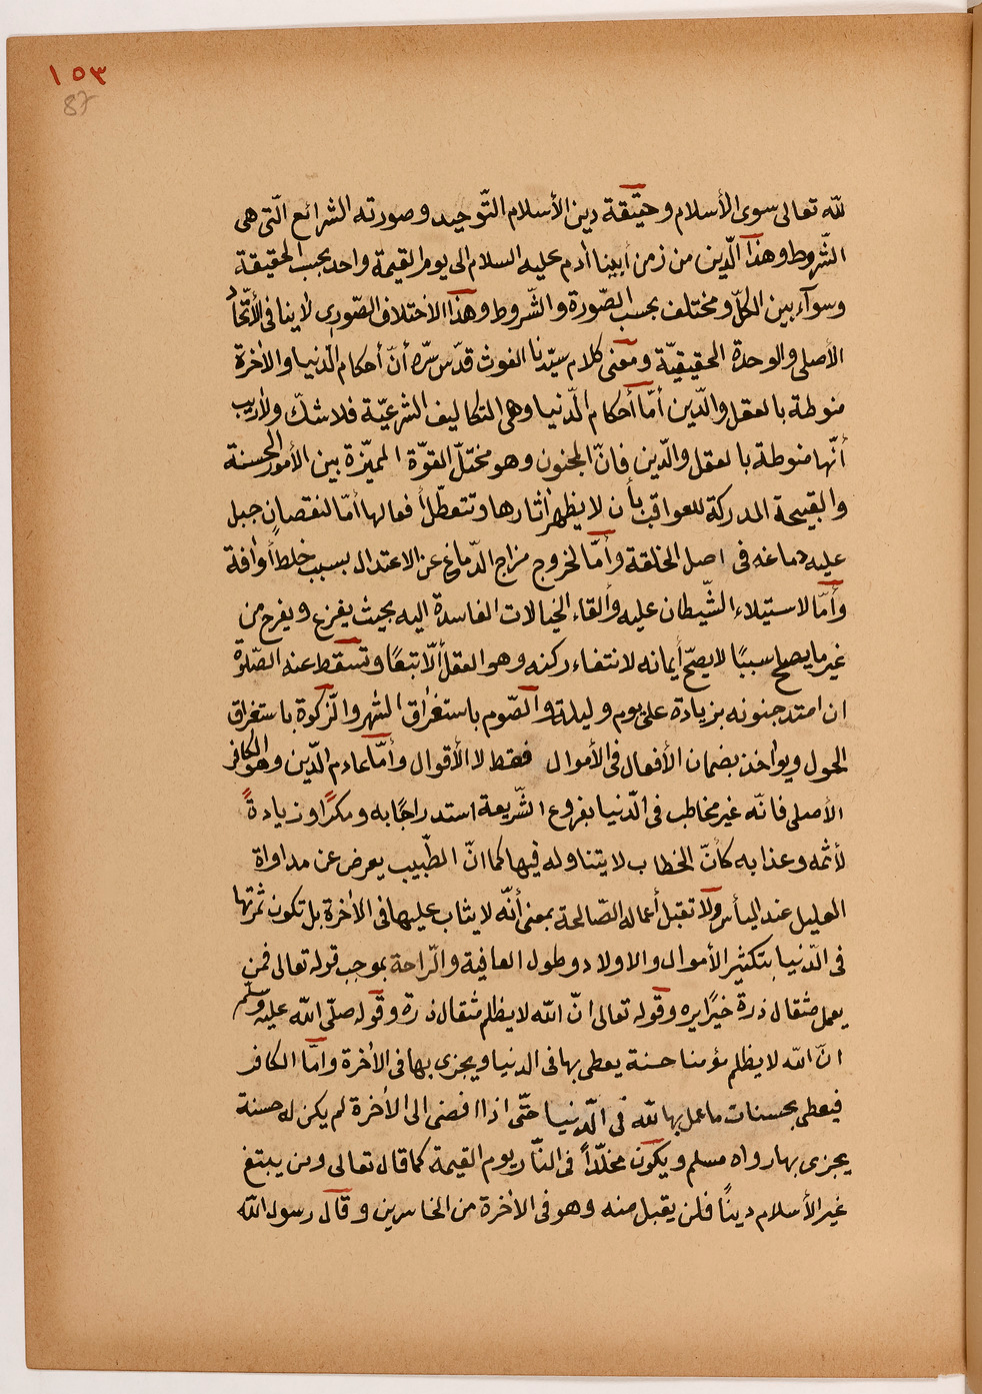 ١٥٣
87
لله تعالى سوى الأسلام وحقيقة دين الأسلام التّوحيد وصورته الشرائع الّتى هى
الشّروط وهذا الّدين من زمن أبينا أدم عليه السلام الى يوم القيمة واحد بحسب الحقيقة
وسوآء بين الكلّ ومختلف بحسب الصّورة والشّروط وهذا الاختلاف الصّورى لا ينافى الأتّحاد
الأصلى والوحدة الحقيقيّة ومعنى كلام سيّدنا الغوث قدّس سرّه أنّ أحكام الدّنيا والأخرة
منوطة بالعقل والدّين أمّا أحكام الدّنيا وهى التكاليف الشرعيّة فلا شكّ ولا ريب
أنّها منوطة بالعقل والدّين فانّ المجنون وهو مختلّ القوّة المميّزة بين الأمور الحسنة
والقبيحة المدركة للعواقب بأن لا يظهر أثارها وتتعطّل أفعالها أمّا النقصان جبل
عليه دماغه فى اصل الخلقة وأمّا لخروج مزاج الدّماغ عن الاعتدال بسبب خلط أو أفة
وأمّا لاستيلاء الشّيطان عليه وألقاء الخيالات الفاسدة اليه بحيث يفزع ويفرح من
غير ما يصلح سببًا لا يصحّ أيمانه لانتفاء ركنه وهو العقل ألّا تبعًا وتسقط عنه الصّلوة
ان امتد جنونه بزيادة على يوم وليلة والصّوم باستغراق الشهر والزّكوة باستغراق
الحول ويواخذ بضمان الأفعال فى الأموال فقط لا الأقوال وأمّا عادم الدّين وهو الكافر
الأصلى فانّه غير مخاطب فى الدّنيا بفروع الشّريعة استدراجًا به ومكرًا وزيادةً
لأثمه وعذابه كأنّ الخطاب لا يتناوله فيها كما انّ الطّبيب يعرض عن مداواة
العليل عند اليأس ولا تقبل أعماله الصّالحة بمعنى أنّه لا يثاب عليها فى الأخرة بل تكون ثمرتها
فى الدّنيا بتكثير الأموال والاولاد وطول العافية والرّاحة بموجب قوله تعالى فمن
يعمل مثقال ذرة خيرًا يره وقوله تعالى انّ الله لا يظلم مثقال ذرّة وقوله صلّى الله عليه وسلّم
انّ الله لا يظلم مؤمنا حسنة يعطى بها فى الدنيا ويجزى بها فى الأخرة وامّا الكافر
فيعطى بحسنات ما عمل بها لله فى الدّنيا حتّى اذا افضى الى الأخرة لم يكن له حسنة
يجزى بها رواه مسلم ويكون مخلّداً فى النّار يوم القيمة كما قال تعالى ومن يبتغ
غير الأسلام دينًا فلن يقبل منه وهو فى الأخرة من الخاسرين وقال رسول الله